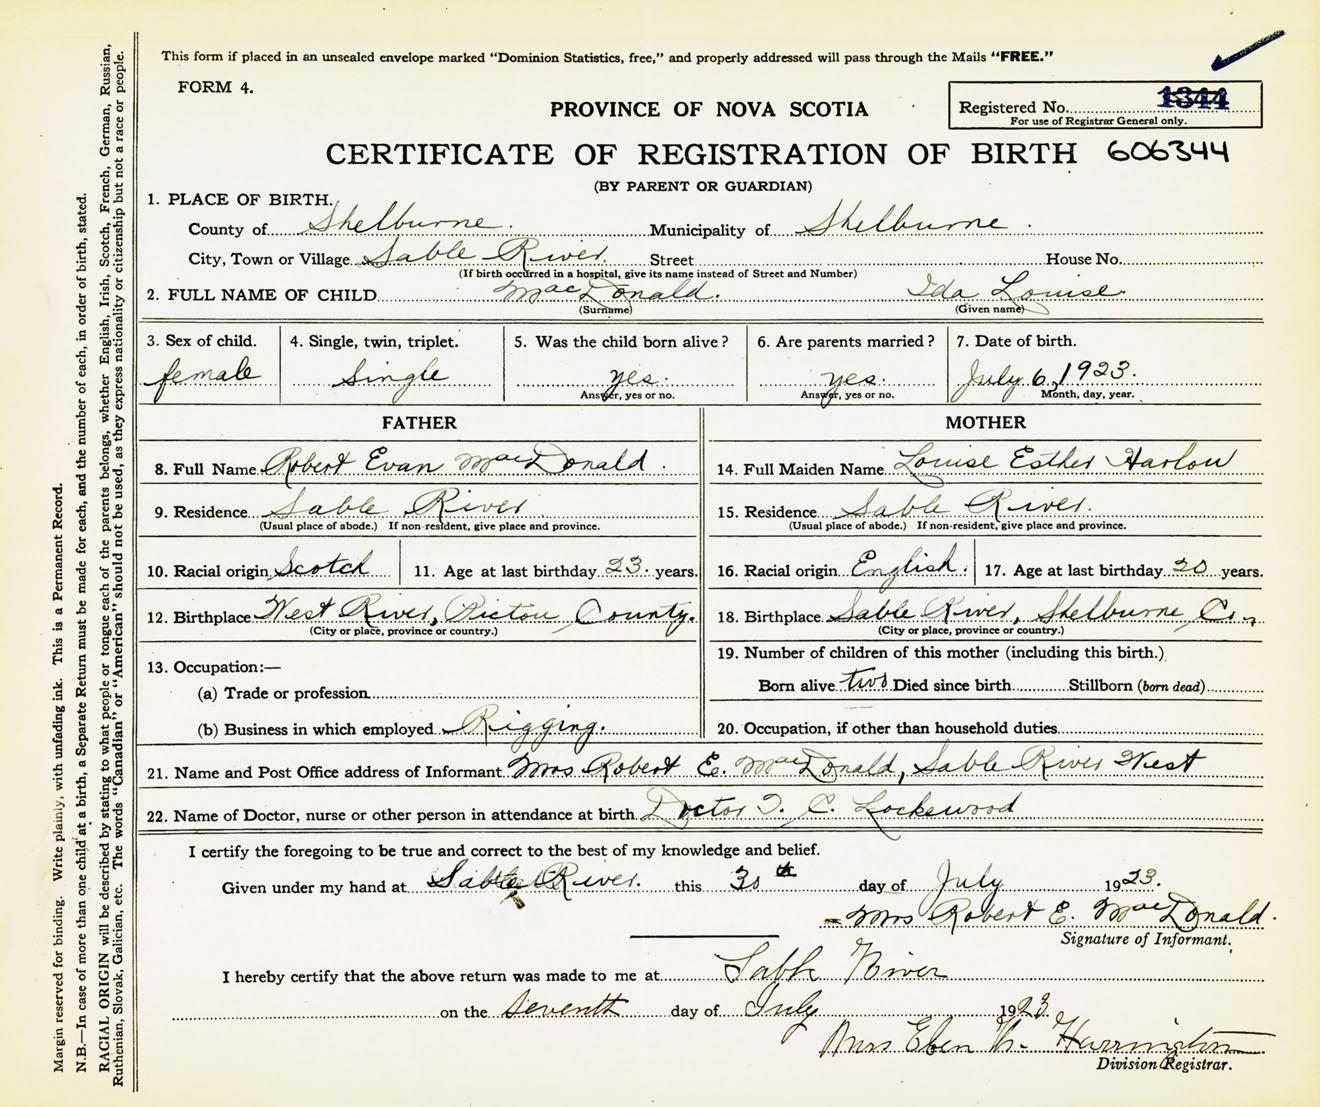 This form if placed in an unsealed envelope marked "Dominion Statistics, free," and properly addressed will pass through the Mails "FREE."
FORM 4.
PROVINCE OF NOVA SCOTIA
Registered No. 1344
For use of Registrar General only.
CERTIFICATE OF REGISTRATION OF BIRTH 606344
(BY PARENT OR GUARDIAN)
1. PLACE OF BIRTH.
County of Shelburne. Municipality of Shelburne.
City, Town or Village Sable River. Street House No.
(If birth occurred in a hospital, give its name instead of Street and Number)
2. FULL NAME OF CHILD MacDonald. Ida Louise
(Surname) (Given name)
3. Sex of child. 4. Single, twin, triplet. 5. Was the child born alive? 6. Are parents married? 7. Date of birth.
female Single yes. yes. July 6, 1923.
Answer, yes or no. Answer, yes or no. Month, day, year.
FATHER MOTHER
8. Full Name Robert Evan MacDonald. 14. Full Maiden Name Louise Esther Harlow
9. Residence Sable River 15. Residence Sable River.
(Usual place of abode.) If non-resident, give place and province. (Usual place of abode.) If non-resident, give place and province.
10. Racial origin Scotch 11. Age at last birthday 23. years. 16. Racial origin English. 17. Age at last birthday 20 years.
12. Birthplace West River, Pictou County. 18. Birthplace Sable River, Shelburne Co.,
(City or place, province or country.) (City or place, province or country.)
13. Occupation:— 19. Number of children of this mother (including this birth.)
(a) Trade or profession Born alive two Died since birth Stillborn (born dead)
(b) Business in which employed Rigging. 20. Occupation, if other than household duties
21. Name and Post Office address of Informant Mrs Robert E. MacDonald, Sable River West
22. Name of Doctor, nurse or other person in attendance at birth Doctor C. Lockewood
I certify the foregoing to be true and correct to the best of my knowledge and belief.
Given under my hand at Sable River. this 30th day of July 1923.
Mrs Robert E. MacDonald.
Signature of Informant.
I hereby certify that the above return was made to me at Sable River
on the seventh day of July 1923.
Mrs Eben Harrington
Division Registrar.
Margin reserved for binding. Write plainly, with unfading ink. This is a Permanent Record.
N.B.—In case of more than one child at a birth, a Separate Return must be made for each, and the number of each, in order of birth, stated.
RACIAL ORIGIN will be described by stating to what people or tongue each of the parents belongs, whether English, Irish, Scotch, French, German, Russian,
Ruthenian, Slovak, Galician, etc. The words "Canadian" or "American" should not be used, as they express nationality or citizenship but not a race or people.